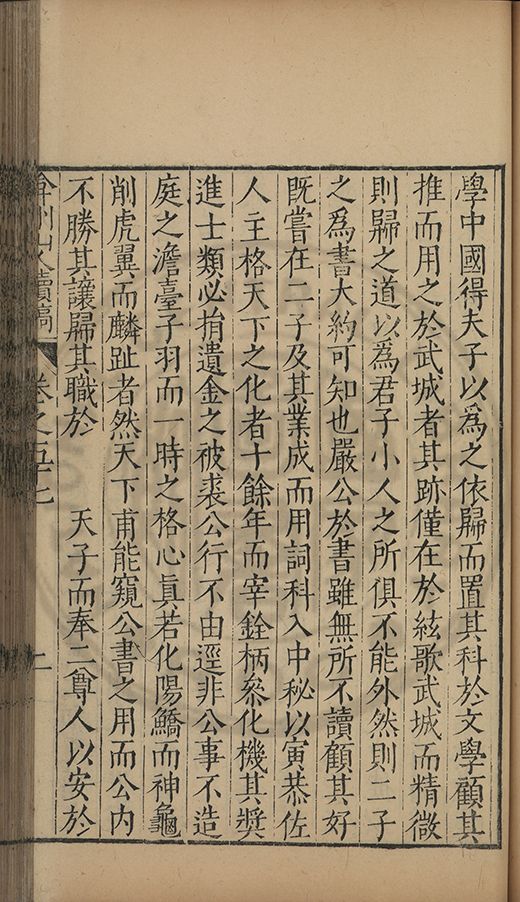 學中國得夫子以爲之依歸而置其科於文學顧其
推而用之於武城者其跡僅在於絃歌武城而精微
則歸之道以爲君子小人之所俱不能外然則二子
之爲書大約可知也嚴公於書雖無所不讀顧其好
既嘗在二子及其業成而用詞科入中秘以寅恭佐
人主格天下之化者十餘年而宰銓柄叅化機其獎
進士類必捐遺金之被裘公行不由逕非公事不造
庭之澹臺子羽而一時之格心眞若化陽鱎而神龜
削虎翼而麟趾者然天下甫能窺公書之用而公內
不勝其讓歸其職於　天子而奉二尊人以安於
山人續稿 卷之五十七 二